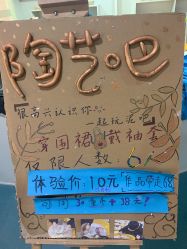 陶艺吧
很高兴认识你
一起玩泥吧
穿围裙 戴袖套
仅限人数:
体验价:10元 作品带走68